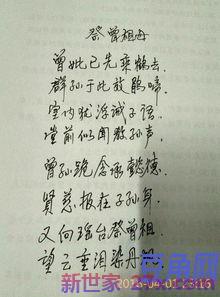 祭曾祖母
曾妣已先乘鹤去
群孙于此放鹃啼
室内犹浮诫子语
堂前似闻教孙声
曾孙跪念承懿德
贤慈报在子孙身
又向瑶台祭曾祖
望云垂泪染丹
新世界
2020-04-01 23:16